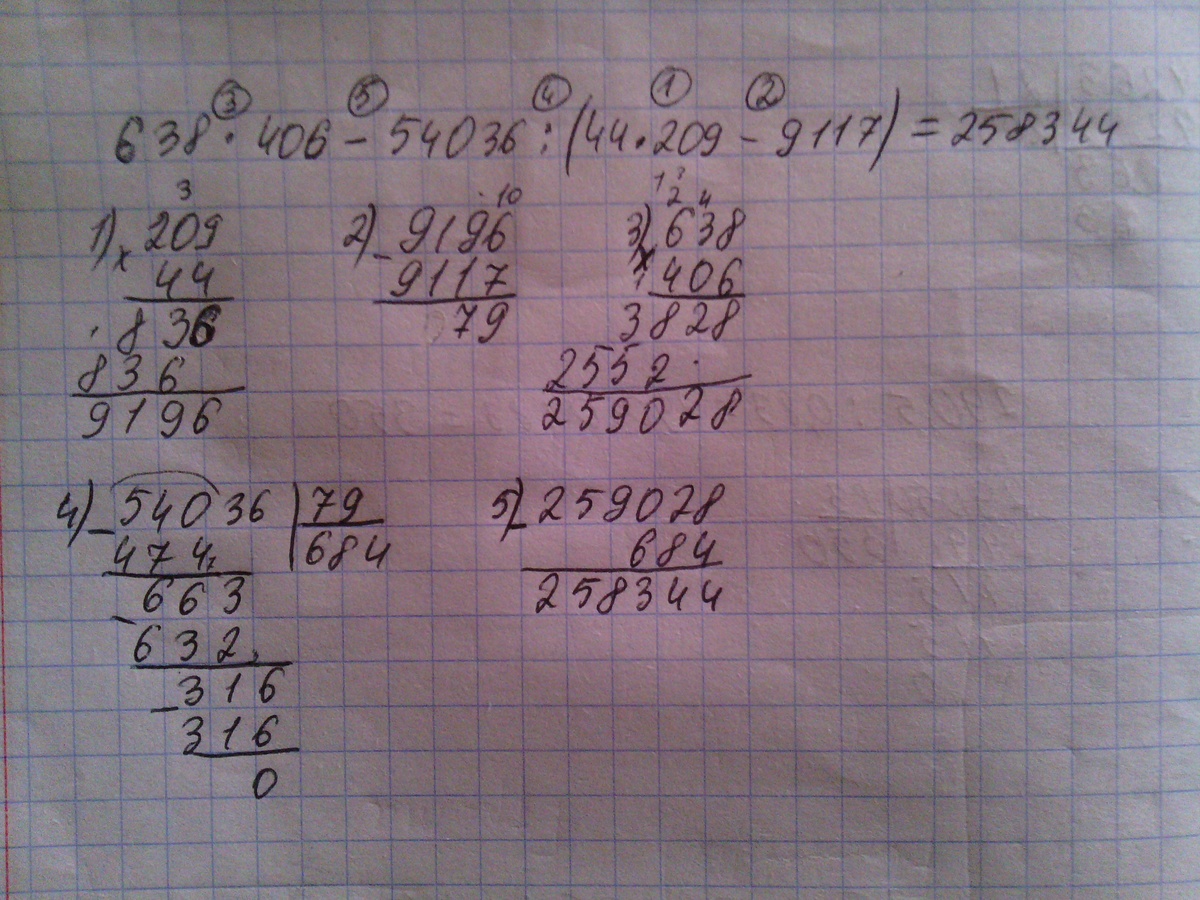 ③ ⑤ ④ ① ②
638 · 406 - 54036 : (44 · 209 - 9117) = 258344
3
1) × 209
44
836
836
9196
10
2) - 9196
9117
79
1 2 4
3) × 638
406
3828
2552
259028
4) - 54036 | 79
474 684
- 663
632
- 316
316
0
5) - 259028
684
258344